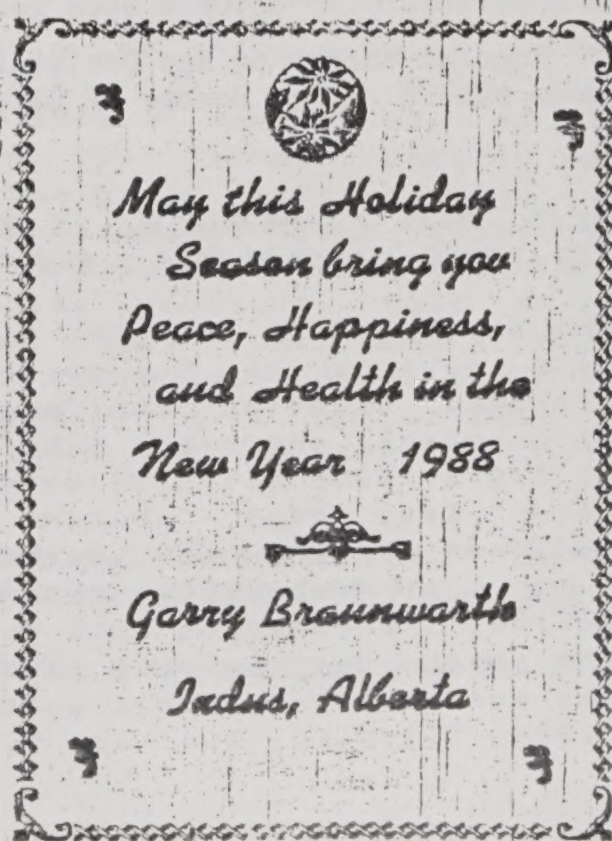 May this Holiday
Season bring you
Peace, Happiness,
and Health in the
New Year 1988
Garry Braunwarth
Indus, Alberta